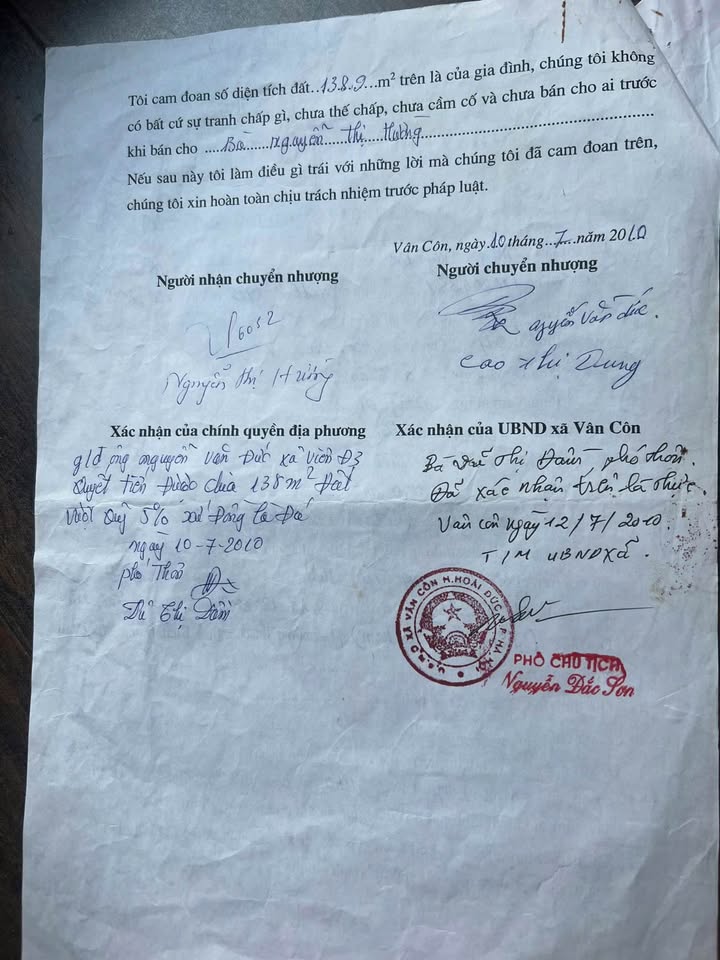 Tôi cam đoan số diện tích đất..138.9...m² trên là của gia đình, chúng tôi không
có bất cứ sự tranh chấp gì, chưa thế chấp, chưa cầm cố và chưa bán cho ai trước
khi bán cho ....Bà.....nguyễn....thị....Hường....
Nếu sau này tôi làm điều gì trái với những lời mà chúng tôi đã cam đoan trên,
chúng tôi xin hoàn toàn chịu trách nhiệm trước pháp luật.
Vân Côn, ngày.10.tháng...7....năm 2010
Người nhận chuyển nhượng
Người chuyển nhượng
Nguyễn Văn Đức.
Cao Thị Dung
Nguyễn thị Hường
Xác nhận của chính quyền địa phương
g/đ ông nguyễn Văn Đức xã viên Đ3
Được chia 138m² Đất
Quỹ 5% xứ Đồng
ngày 10-7-2010
phó Thôn
Thị
Xác nhận của UBND xã Vân Côn
Bà Thị phó thôn.
Đã xác nhận trên là thực.
Vân côn ngày 12/7/2010
T/M UBND xã.
U.B.N.D XÃ VÂN CÔN H.HOÀI ĐỨC T.P. HÀ NỘI
PHÓ CHỦ TỊCH
Nguyễn Đắc Sơn